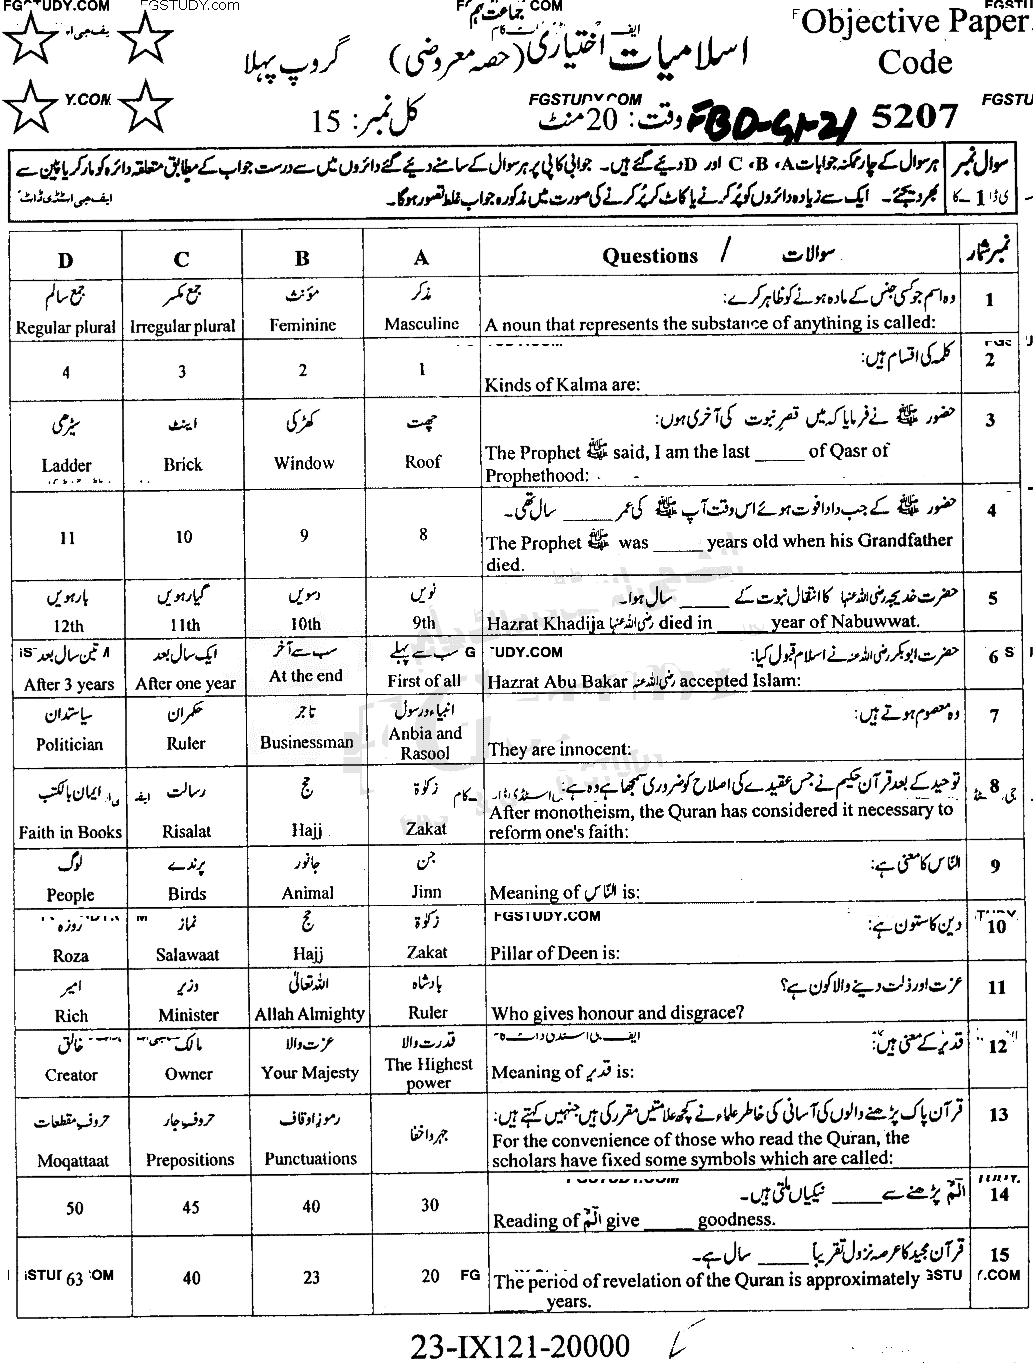 FGSTUDY.COM FGSTUDY.com جماعت نہم COM
اسلامیات اختیاری (حصہ معروضی) گروپ پہلا
Objective Paper
Code
Y.COM FGSTUDY.COM FGSTU
5207 FBD-G1-21 وقت: 20 منٹ کل نمبر: 15
سوال نمبر 1 ہر سوال کے چار ممکنہ جوابات A، B، C اور D دیئے گئے ہیں۔ جوابی کاپی پر ہر سوال کے سامنے دیئے گئے دائروں میں سے درست جواب کے مطابق متعلقہ دائرہ کو مارکر یا پین سے
بھر دیجئے۔ ایک سے زیادہ دائروں کو پُر کرنے یا کاٹ کر پُر کرنے کی صورت میں مذکورہ جواب غلط تصور ہوگا۔
D C B A Questions / سوالات نمبر شمار
جمع سالم جمع مکسر مؤنث مذکر وہ اسم جو کسی جنس کے مادہ ہونے کو ظاہر کرے: 1
Regular plural Irregular plural Feminine Masculine A noun that represents the substance of anything is called:
4 3 2 1 کلمہ کی اقسام ہیں: 2
Kinds of Kalma are:
سیڑھی اینٹ کھڑکی چھت حضور ﷺ نے فرمایا کہ میں قصرِ نبوت کی آخری ہوں: 3
Ladder Brick Window Roof The Prophet ﷺ said, I am the last _____ of Qasr of
Prophethood:
حضور ﷺ کے جب دادا فوت ہوئے اس وقت آپ ﷺ کی عمر _____ سال تھی۔ 4
11 10 9 8 The Prophet ﷺ was _____ years old when his Grandfather
died.
بارہویں گیارہویں دسویں نویں حضرت خدیجہ رضی اللہ عنہا کا انتقال نبوت کے _____ سال ہوا۔ 5
12th 11th 10th 9th Hazrat Khadija رضی اللہ عنہا died in _____ year of Nabuwwat.
تین سال بعد ایک سال بعد سب سے آخر سب سے پہلے حضرت ابوبکر رضی اللہ عنہ نے اسلام قبول کیا: 6
After 3 years After one year At the end First of all Hazrat Abu Bakar رضی اللہ عنہ accepted Islam:
سیاستدان حکمران تاجر انبیاء و رسول وہ معصوم ہوتے ہیں: 7
Politician Ruler Businessman Anbia and Rasool They are innocent:
ایمان بالکتب رسالت حج زکوٰۃ توحید کے بعد قرآن حکیم نے جس عقیدے کی اصلاح کو ضروری سمجھا ہے وہ ہے: 8
After monotheism, the Quran has considered it necessary to
Faith in Books Risalat Hajj Zakat reform one's faith:
لوگ پرندے جانور جن النّاس کا معنی ہے: 9
People Birds Animal Jinn Meaning of النّاس is:
روزہ نماز حج زکوٰۃ دین کا ستون ہے: 10
FGSTUDY.COM
Roza Salawaat Hajj Zakat Pillar of Deen is:
امیر وزیر اللہ تعالیٰ بادشاہ عزت اور ذلت دینے والا کون ہے؟ 11
Rich Minister Allah Almighty Ruler Who gives honour and disgrace?
خالق مالک عزت والا قدرت والا قدیر کے معنی ہیں: 12
Creator Owner Your Majesty The Highest power Meaning of قدیر is:
حروف مقطعات حروف جار رموز اوقاف جہر و اخفا قرآن پاک پڑھنے والوں کی آسانی کی خاطر علماء نے کچھ علامتیں مقرر کی ہیں جنہیں کہتے ہیں: 13
Moqattaat Prepositions Punctuations For the convenience of those who read the Quran, the
scholars have fixed some symbols which are called:
الٓمّٓ پڑھنے سے _____ نیکیاں ملتی ہیں۔ 14
50 45 40 30 Reading of الٓمّٓ give _____ goodness.
قرآن مجید کا عرصہ نزول تقریباً _____ سال ہے۔ 15
63 40 23 20 The period of revelation of the Quran is approximately
_____ years.
23-IX121-20000